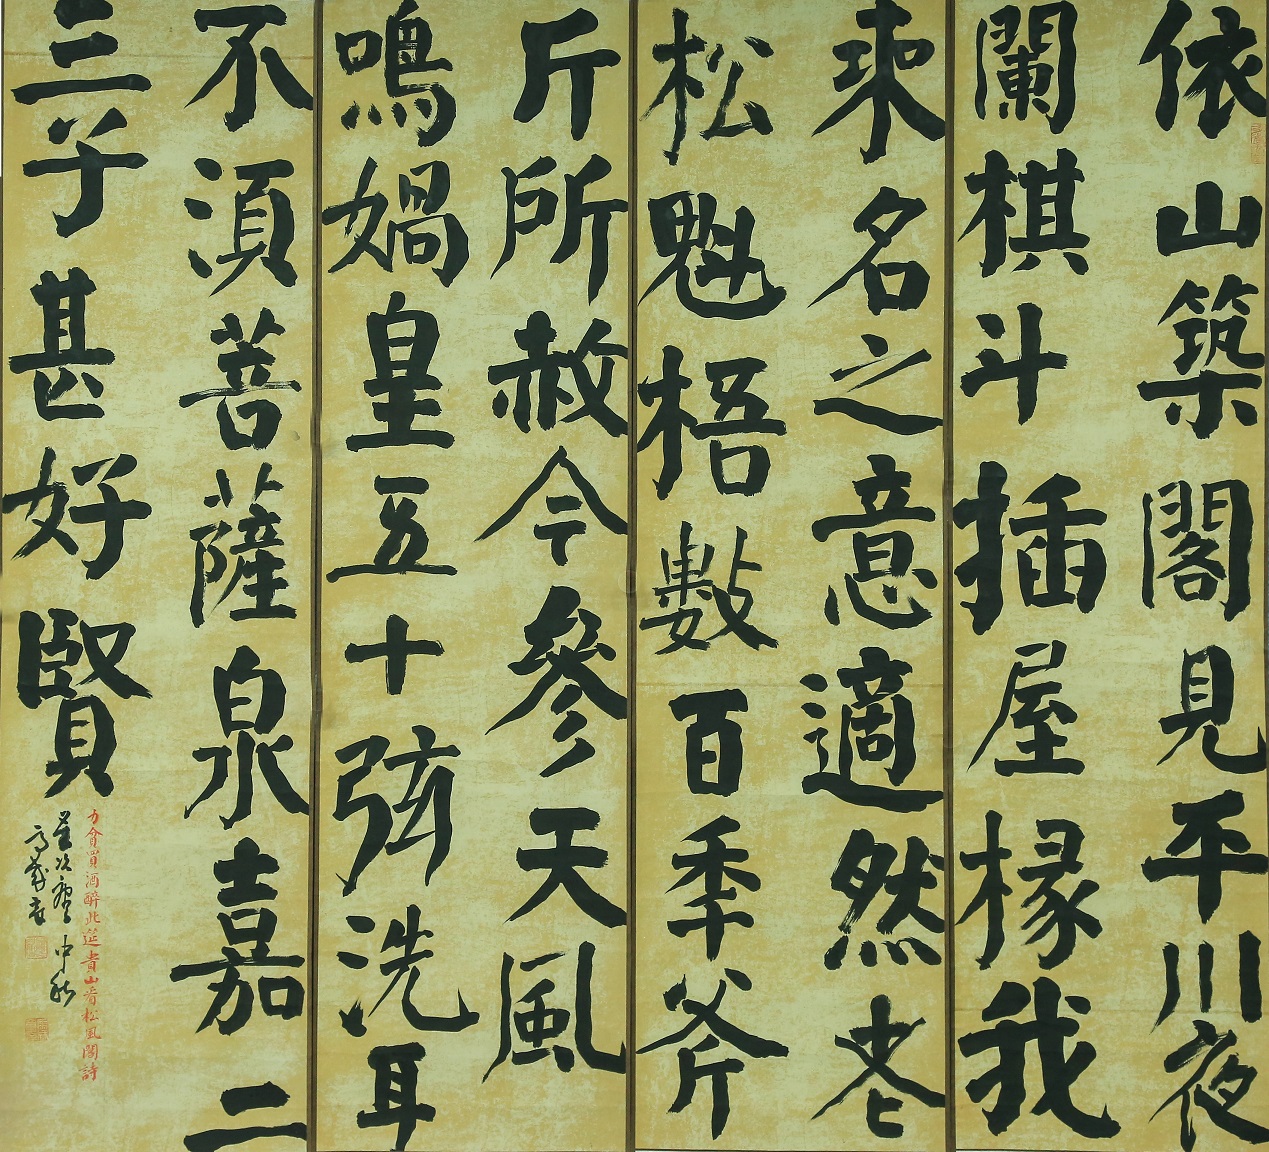 依山築閣見平川夜
闌棋斗插屋椽我
來名之意適然老
松魁梧數百秊斧
斤所赦今參天風
鳴媧皇五十弦洗耳
不須菩薩泉嘉二
三子甚好賢
力貧買酒醉此筵書山谷松風閣詩
中秋